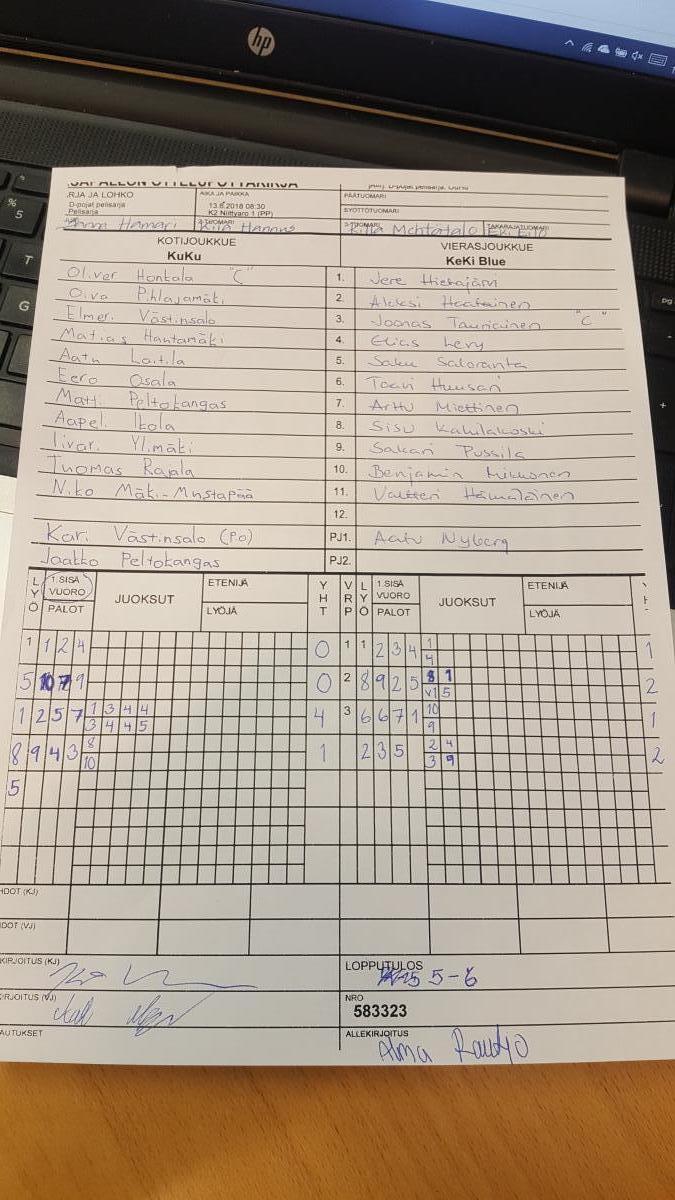 hp
% 5
T
G
SAPALLON OTTELUPÖYTÄKIRJA
RJA JA LOHKO AIKA JA PAIKKA PÄÄTUOMARI
D-pojat pelisarja 13.6.2018 08:30
Pelisarja K2 Niittyaro 1 (PP) SYÖTTÖTUOMARI
Hamari 2-TUOMARI Hannus 3-TUOMARI TAKARAJATUOMARI
KOTIJOUKKUE VIERASJOUKKUE
KuKu KeKi Blue
Oliver Honkala "C" 1. Jere Hietajärvi
Oiva Pihlajamäki 2. Aleksi Haatainen
Elmeri Västinsalo 3. Joonas Tauriainen "C"
Matias Hantamäki 4. Elias Levy
Aatu Laitila 5. Saku Saloranta
Eero Osala 6. Taavi Huusari
Matti Peltokangas 7. Arttu Miettinen
Aapeli Ikola 8. Sisu Kahilakoski
Iivari Ylimäki 9. Sakari Pussila
Thomas Rajala 10. Benjamin Mikkonen
Niko Mäki-Mustapää 11. Valtteri Hämäläinen
12.
Kari Västinsalo (Po) PJ1. Aatu Nyberg
Jaakko Peltokangas PJ2.
LYÖ 1.SISÄ VUORO PALOT JUOKSUT ETENIJÄ LYÖJÄ YHT VRP LYÖ 1.SISÄ VUORO PALOT JUOKSUT ETENIJÄ LYÖJÄ
1 1 2 4 0 1 1 2 3 4 1 4 1
5 7 9 0 2 8 9 2 5 1 V1 5 2
1 2 5 7 1 3 4 4 3 4 4 5 4 3 6 6 7 1 10 9 1
8 9 4 3 8 10 1 2 3 5 2 4 3 9 2
5
HDOT (KJ)
HDOT (VJ)
KIRJOITUS (KJ) LOPPUTULOS
5-6
KIRJOITUS (VJ) NRO
583323
AUTUKSET ALLEKIRJOITUS
Alma Rautio